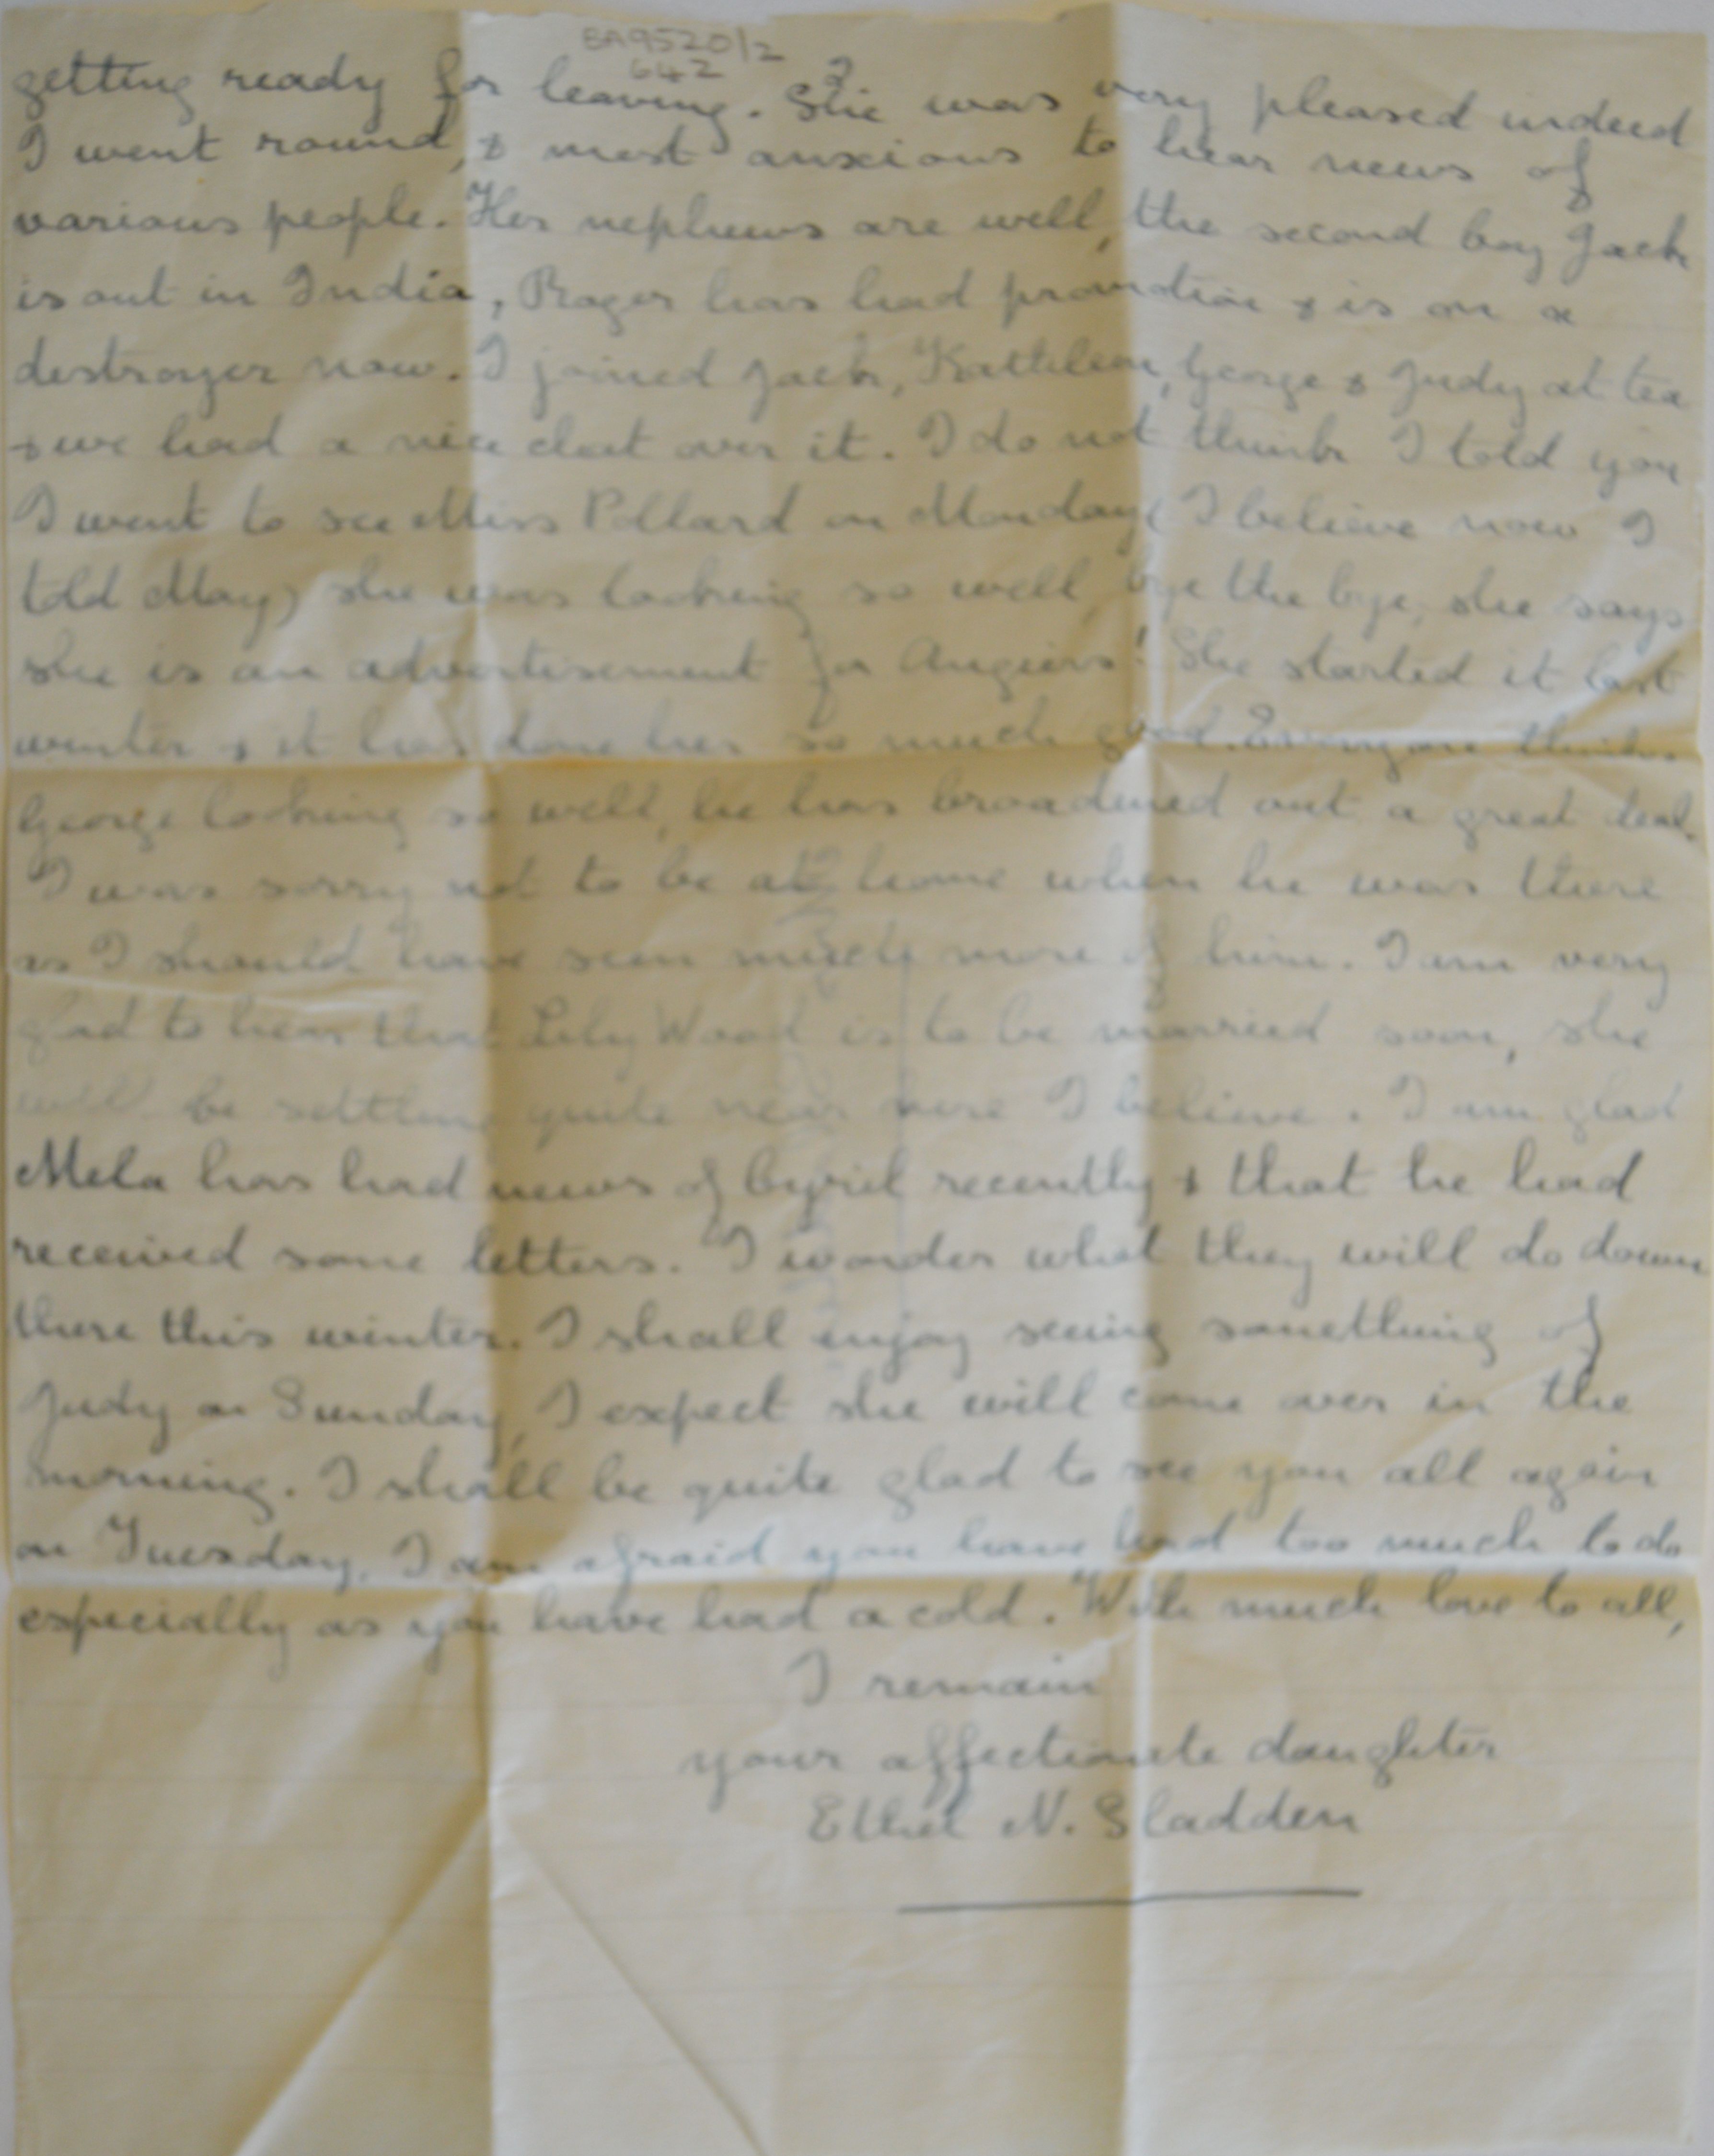 BA9520/2
642
2
getting ready for leaving. She was very pleased indeed
I went round, & most anxious to hear news of
various people. Her nephews are well, the second boy Jack
is out in India, Roger has had promotion & is on a
destroyer now. I joined Jack, Kathleen, George & Judy at tea
& we had a nice chat over it. I do not think I told you
I went to see Miss Pollard on Monday (I believe now I
told May) she was looking so well, bye the bye, she says
she is an advertisement for Angiers! She started it last
winter & it has done her so much good. Everyone thinks
George looking so well, he has broadened out a great deal.
I was sorry not to be at home when he was there
as I should have seen much more of him. I am very
glad to hear that Lily Wood is to be married soon, she
will be settling quite near here I believe. I am glad
Mela has had news of Cyril recently & that he had
received some letters. I wonder what they will do down
there this winter. I shall enjoy seeing something of
Judy on Sunday, I expect she will come over in the
morning. I shall be quite glad to see you all again
on Tuesday, I am afraid you have had too much to do
especially as you have had a cold. With much love to all,
I remain
your affectionate daughter
Ethel N. Sladden